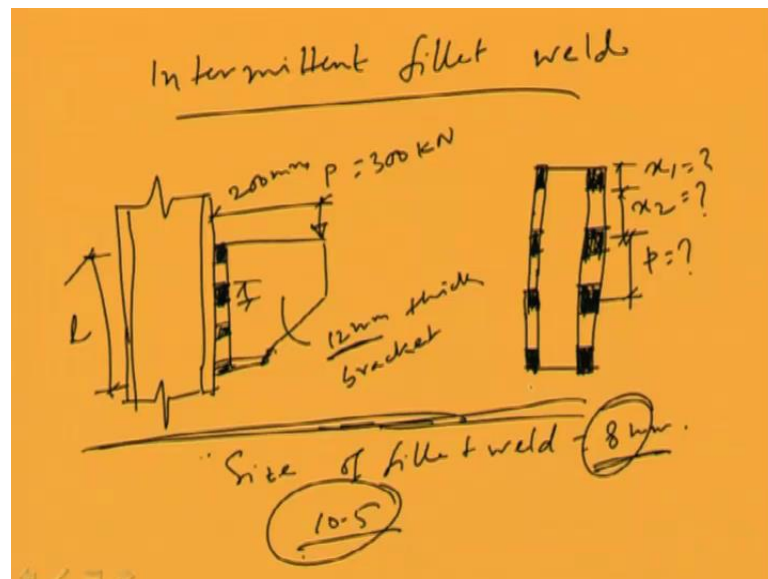 Intermittent fillet weld
200mm P = 300 KN
x1 = ?
x2 = ?
p = ?
l
12mm thick
bracket
Size of fillet weld - 8 mm.
10.5